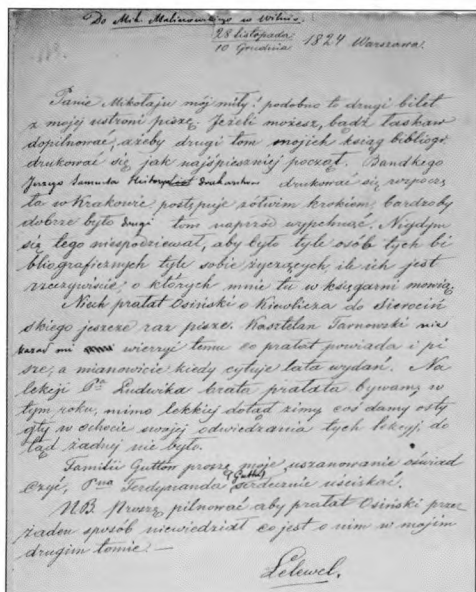 Do Mik. Malinowskiego w Wilnie.
28 listopada
10 Grudnia 1824 Warszawa.
Panie Mikołaju mój miły! podobno to drugi bilet
z mojej ustroni piszę. Jeżeli możesz, bądź łaskaw
dopilnować, ażeby drugi tom mojich ksiąg bibliogr.
drukować się jak najśpieszniej począł. Bandkego
Jerzego Samuela Historya drukarstwa drukować się rozpoczę
ta w Krakowie, postępuje żółwim krokiem, bardzoby
dobrze było drugi tom naprzód wypchnąć. Nigdym
się tego niespodziewał, aby było tyle osób tych bi
bliograficznych tyle sobie życzących, ile ich jest
rzeczywiście, o których mnie tu w księgarni mówią.
Niech prałat Osiński o Kiewlicza do Sierociń
skiego jeszcze raz pisze. Kasztelan Tarnowski nie
kazał mi wierzyć temu co prałat powiada i pi
sze, a mianowicie kiedy cytuje lata wydań. Na
lekcji Pa Ludwika brata prałata bywam, w
tym roku, mimo lekkiej dotąd zimy, coś damy osty
gły w ochocie swojej odwiedzania tych lekcyj, do
tąd żadnej nie było.
Familii Gutton proszę moje uszanowanie oświad
czyć, Pna Ferdynanda (Gutta) serdecznie uściskać.
NB. Proszę pilnować aby prałat Osiński prze
żaden sposób niewiedział co jest o nim w mojim
drugim tomie.—
Lelewel.